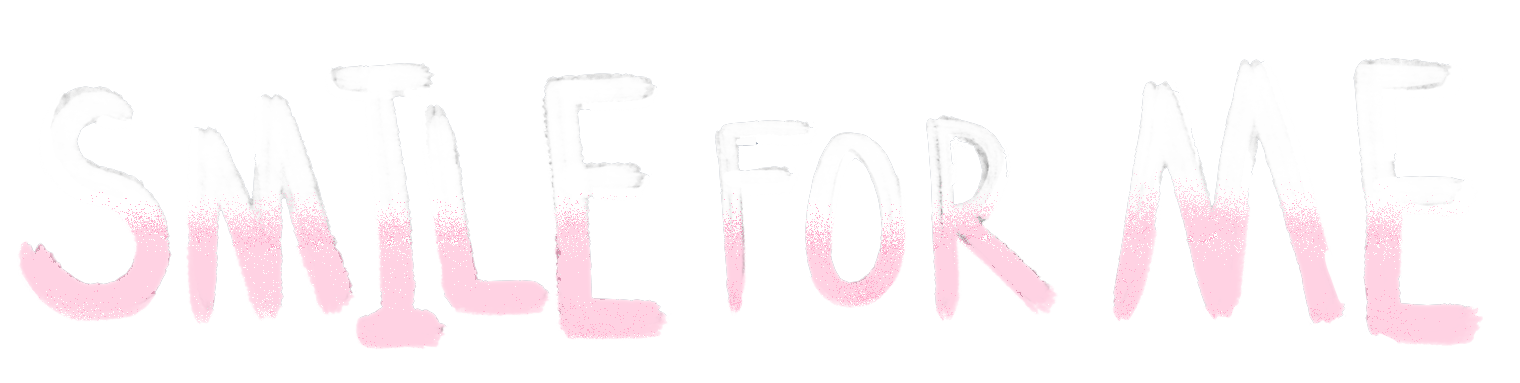 SMILE FOR ME